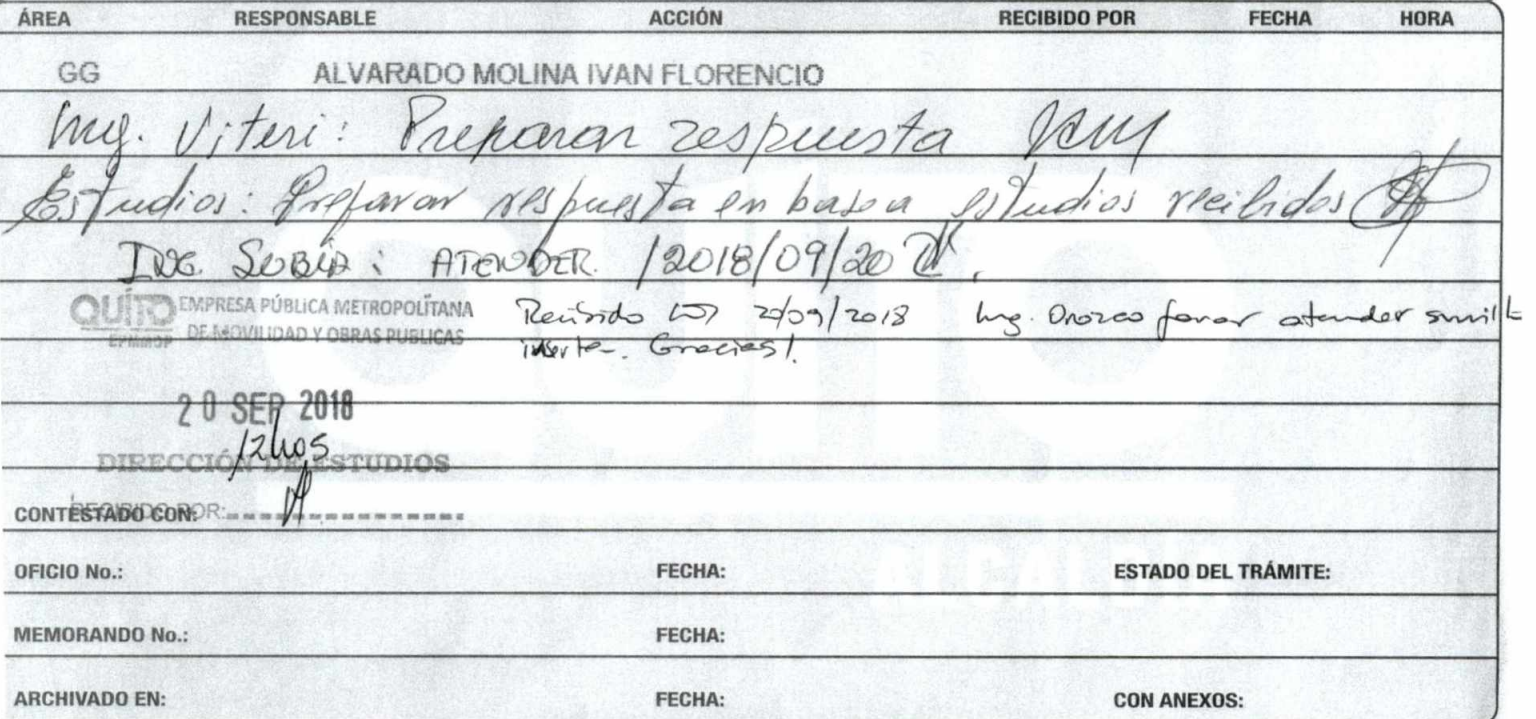 ÁREA RESPONSABLE ACCIÓN RECIBIDO POR FECHA HORA
GG ALVARADO MOLINA IVAN FLORENCIO
Ing. Viteri: Preparar respuesta
Estudios: Preparar respuesta en base a estudios recibidos
ING. SUBÍA: ATENDER. /2018/09/20
QUITO EMPRESA PÚBLICA METROPOLITANA
EPMMOP DE MOVILIDAD Y OBRAS PUBLICAS
Recibido 20/09/2018 Ing. Orozco favor atender sumilla
inserta. Gracias!
20 SEP 2018
12h05
DIRECCIÓN DE ESTUDIOS
RECIBIDO POR:
CONTESTADO CON:
OFICIO No.: FECHA: ESTADO DEL TRÁMITE:
MEMORANDO No.: FECHA:
ARCHIVADO EN: FECHA: CON ANEXOS:
QUITO
ALCALDÍA